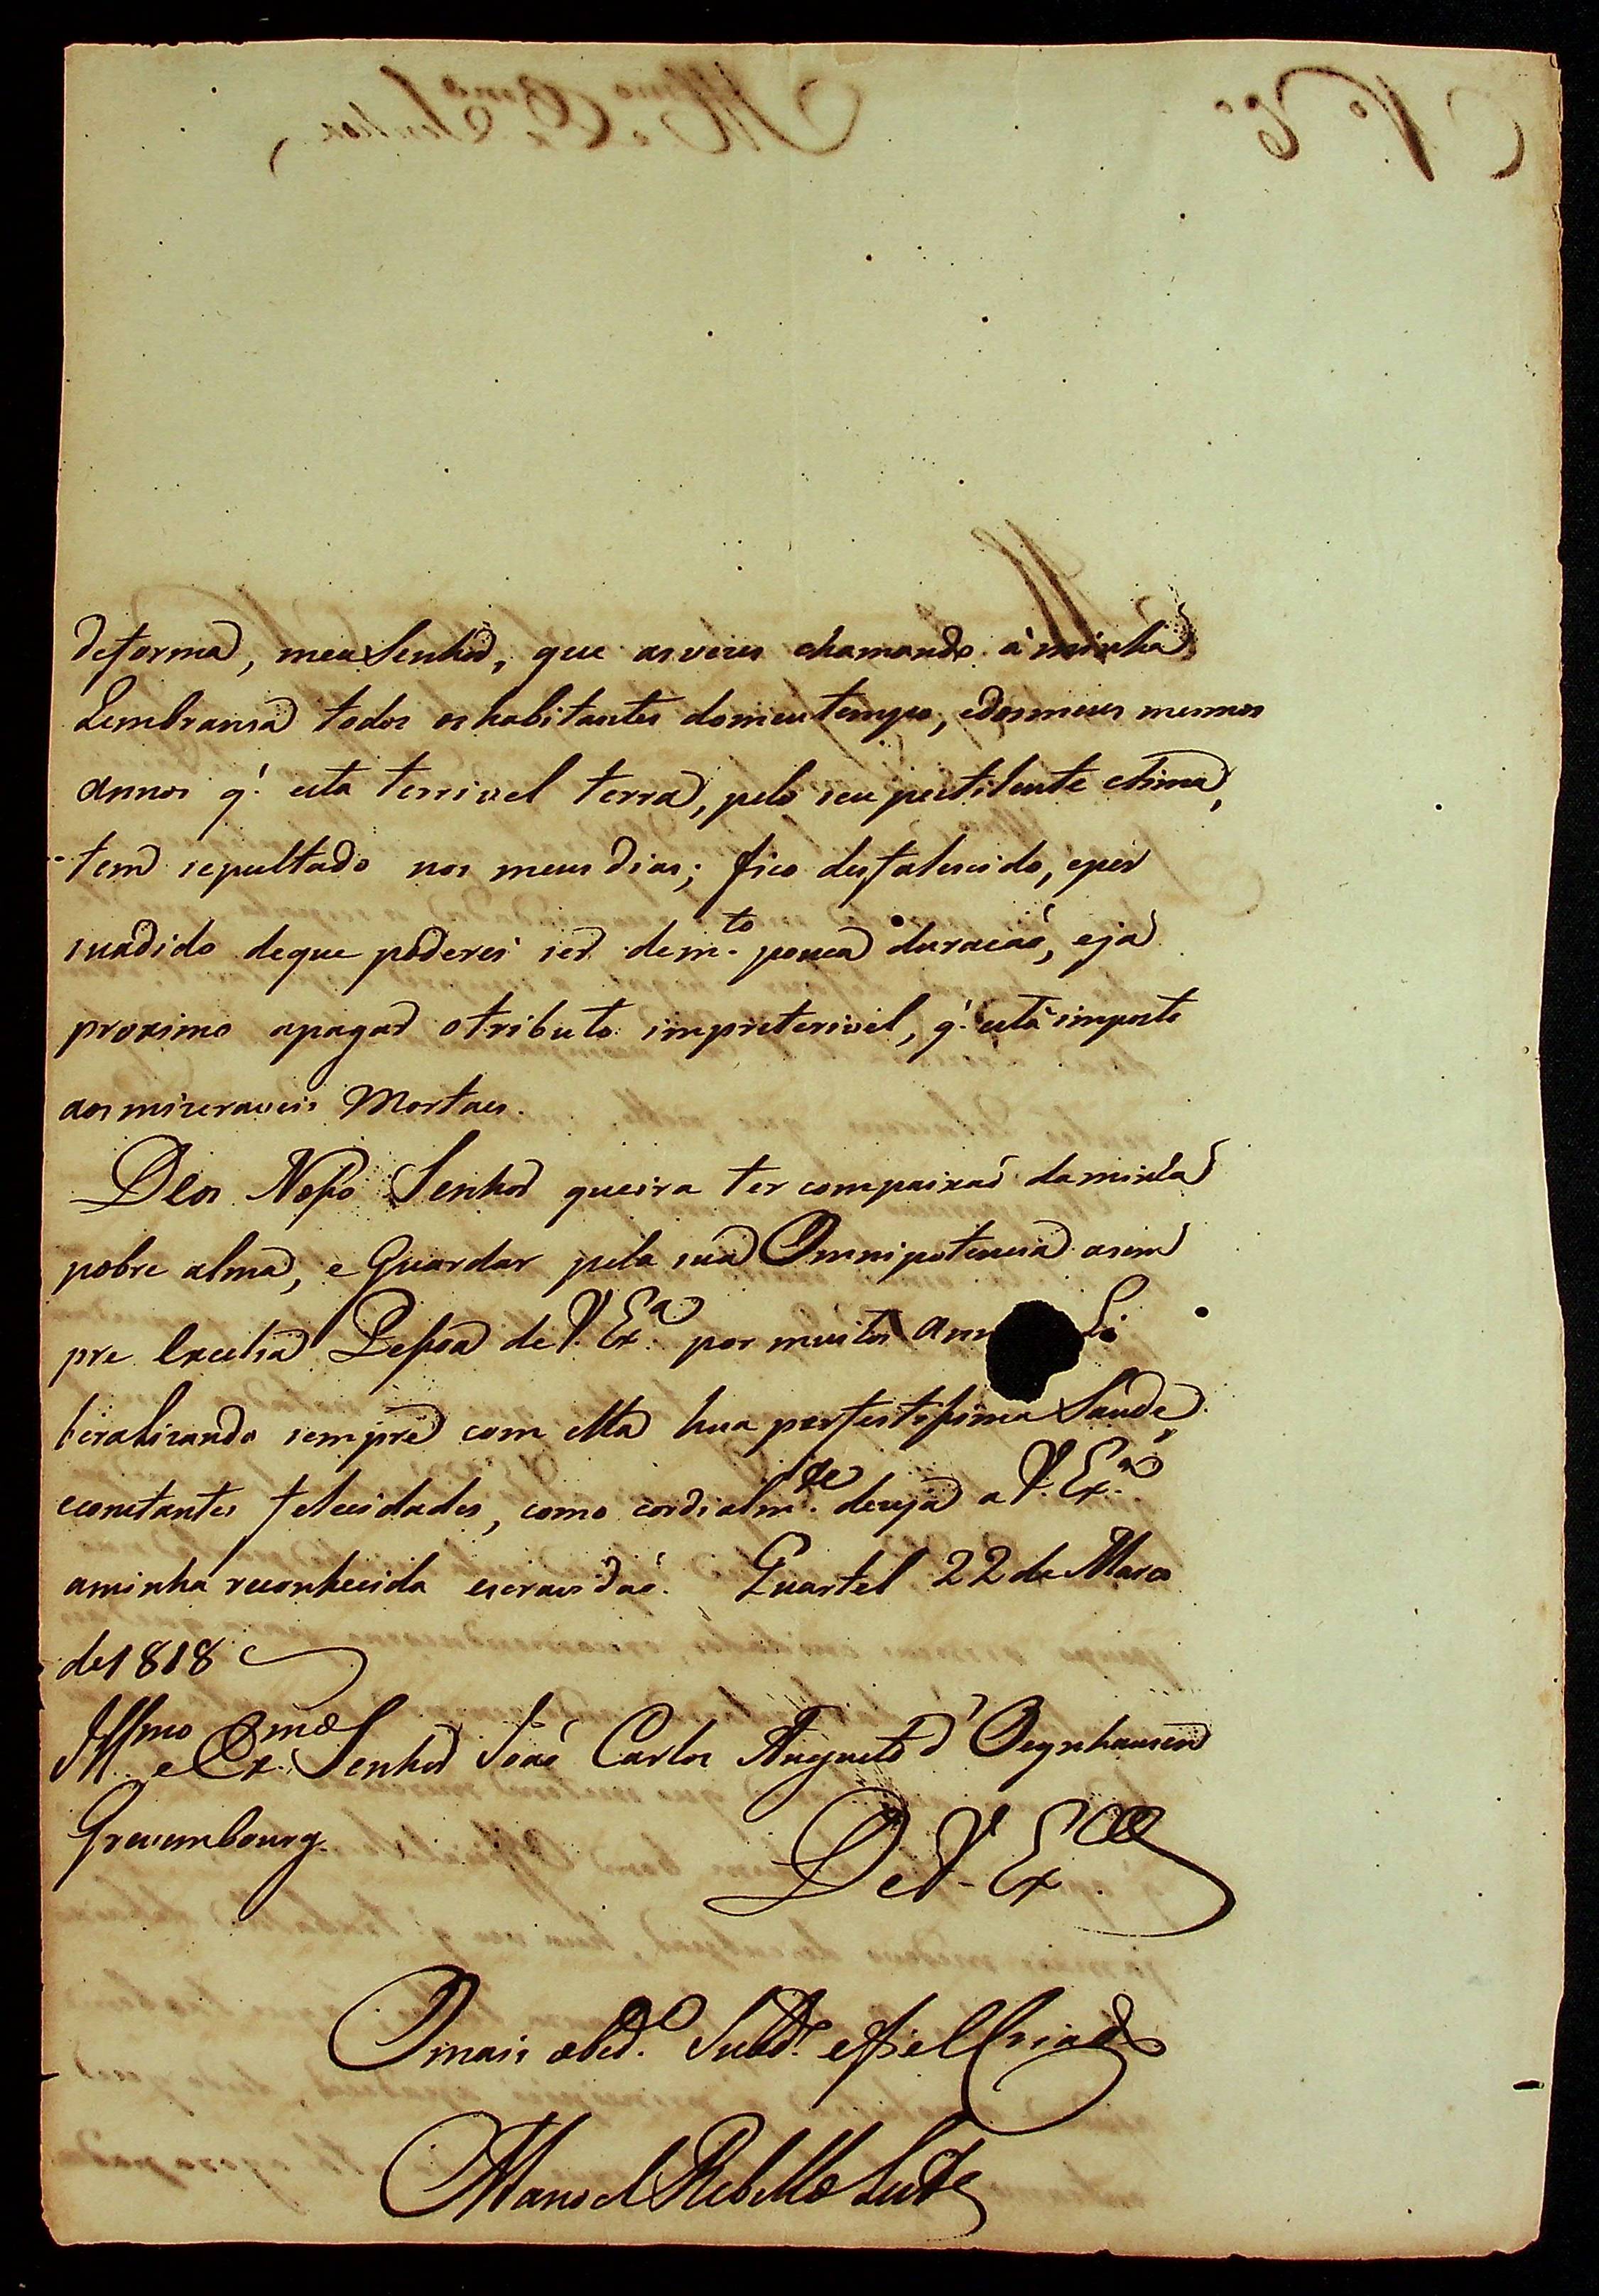 deforma, meu Senhor, que asvezes chamando á minha
Lembransa todos os habitantes domeu tempo, edosmeus mesmos
annos q.' esta terrivel terra, pelo seu pestilente clima,
tem sepultado nos meus dias; fico desfalescido, eper
suadido deque poderei ser dem.to pouca duracaó, ejá
proximo apagar otributo impreterivel, q.' está imposto
aos mizeraveis Mortaes.
Deos Nosso Senhor queira ter compaixaó daminha
pobre alma, e Guardar pela sua Omnipotencia asem
pre Excelsa Pessoa de V. Ex.a por muitos ann Li
beralizando sempre com ella hua perfeitissima Saude,
econstantes felecidades, como cordialm.te dezeja a V. Ex.a
aminha reconhecida escravidaó. Quartel 22 de Marco
de 1818
Illmo e Ex.mo Senhor Joaó Carlos Augusto d'Oeynhausen
Grevembourg.
De V. Ex.a
Omais obd.o Subd.o efiel Criado
Manoel Rebello Leite